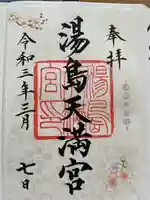 奉拝
湯島天満宮
令和三年三月
七日